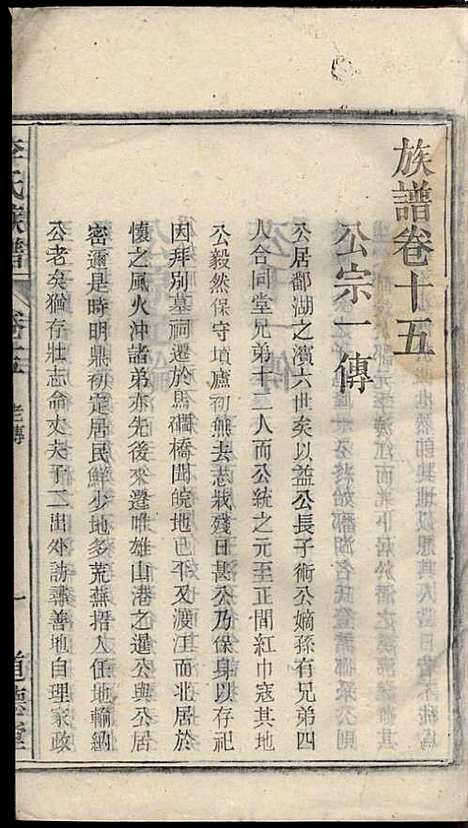 族譜卷十五
公宗一傳
公居鄱湖之濱六世矣以益公長子術公嫡孫有兄弟四
人合同堂兄弟十二人而公統之元至正間紅巾寇其地
公毅然保守墳廬初無去志栽殘日甚公乃保身以存祀
因拜別墓祠遷於馬礀橋聞皖地已平又渡江而北居於
懷之風火冲諸弟亦先後來遷唯雄山港之暹公與公居
密邇是時明鼎初定居民鮮少地多荒蕪搢人任地輸納
公老矣猶存壯志命丈夫子二出外訪尋善地自理家政
李氏族譜
卷十五
老傳
一
道德堂